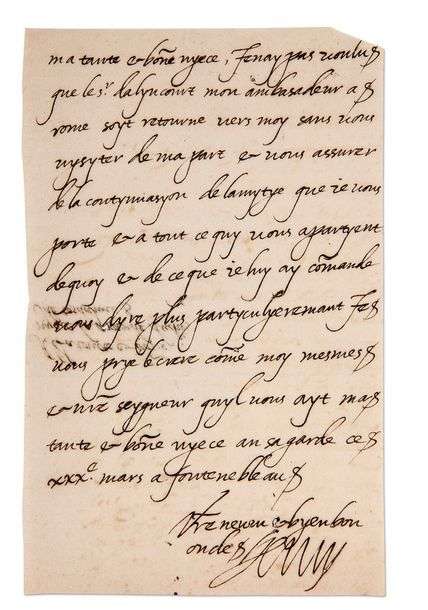 ma tante & bõne nyece, Je nay pas voulu
que le s.r dalyncourt mon ambasadeur a
rome soyt retourne vers moy sans vous
vysyter de ma part & vous assurer
de la contynuasyon de lamytye que je vous
porte & a tout ce quy vous apartyent
de quoy & de ce que je luy ay cõmande
vous dyre plus partyculyeremant Je
vous prye le crere cõme moy mesmes
& nre seygneur quyl vous ayt ma
tante & bõne nyece an sa garde ce
xxxe mars a fonteneble au
Vre neveu & byen bon
oncle Henry